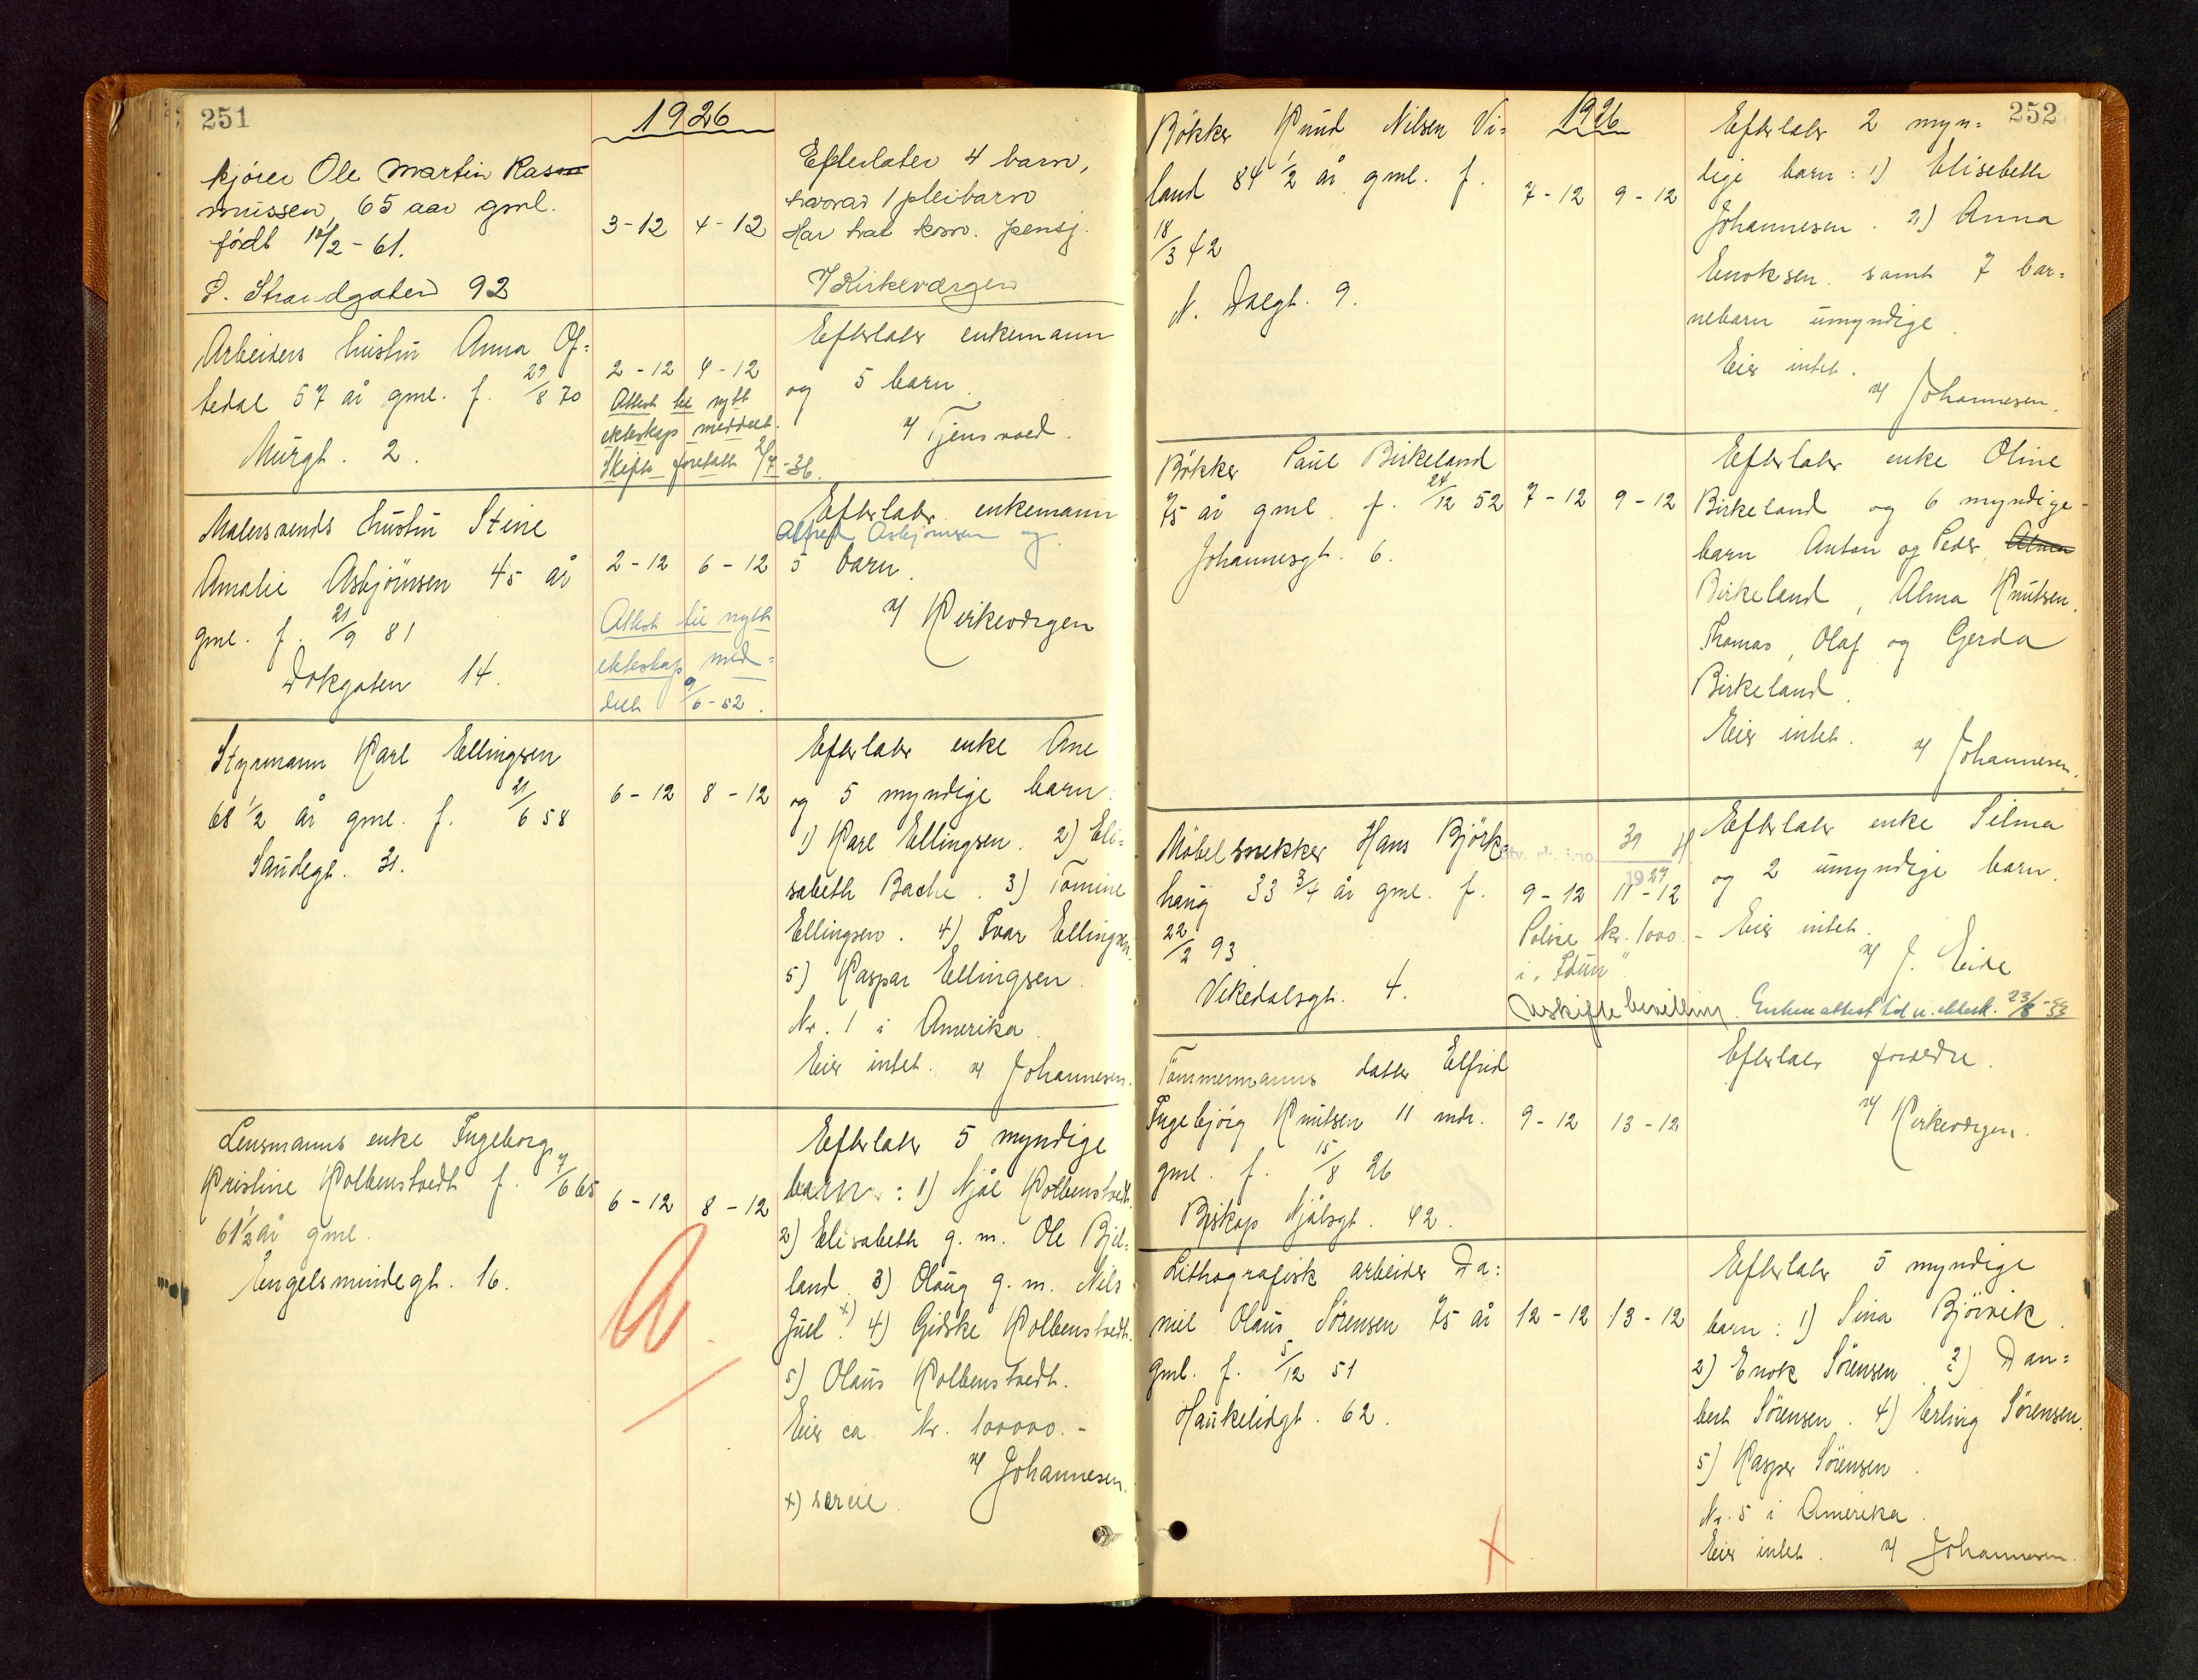 251
1926
kjører Ole Martin Ras
mussen, 65 aar gml.
født 12/2 - 61.
S. Strandgaten 92
3-12 4-12
Efterlater 4 barn,
hvorav 1 pleibarn
Har hat kom. pensj.
Kirkeværgen
Arbeiders hustru Anna Of=
tedal 57 år gml. f. 29/8 70
Murgt. 2.
2-12 4-12
Attest til nytt
ekteskap meddelt.
Skifte foretatt 2/7-36.
Efterlater enkemann
og 5 barn.
Tjensvoed.
Malersvends hustru Stine
Amalie Asbjörnsen 45 år
gml. f. 21/9 81
Dokgaten 14.
2-12 6-12
Attest til nytt
ekteskap med=
delt 9/6-52.
Efterlater enkemann
Alfred Asbjørnsen og
5 barn.
Kirkeværgen
Styrmann Karl Ellingsen
68 1/2 år gml. f. 21/6 58
Saudegt. 31.
6-12 8-12
Efterlater enke Ane
og 5 myndige barn.
1) Karl Ellingsen. 2) Eli=
sabeth Bache. 3) Tomine
Ellingsen. 4) Ivar Ellingsen.
5) Kaspar Ellingsen.
Nr. 1 i Amerika.
Eier intet. Johannesen.
Lensmanns enke Ingeborg
Kristine Kolbenstvedt f. 7/6 65
61 1/2 år gml.
Engelsmindegt. 16.
6-12 8-12
Efterlater 5 myndige
barn: 1) Njål Kolbenstvedt.
2) Elisabeth g. m. Ole Bjel=
land. 3) Olaug g. m. Nils
Juel. x) 4) Gidske Kolbenstvedt.
5) Olaus Kolbenstvedt.
Eier ca. kr. 100000.-
Johannesen.
x) særeie.
252
1926
Bökker Knud Nilsen Vi=
land 84 1/2 år gml. f.
18/3 42
N. Dalgt. 9.
7-12 9-12
Efterlater 2 myn=
dige barn: 1) Elisebeth
Johannesen. 2) Anna
Enoksen. samt 7 bar=
nebarn umyndige.
Eier intet.
Johannesen.
Bökker Paul Birkeland
75 år gml. f. 24/12 52
Johannesgt. 6.
7-12 9-12
Efterlater enke Oline
Birkeland og 6 myndige
barn Anton og Peder, Alma
Birkeland, Alma Knutsen,
Thomas, Olaf og Gerda
Birkeland.
Eier intet. Johannesen.
Möbelsnekker Hans Björk=
haug 33 3/4 år gml. f.
22/2 93
Vikedalsgt. 4.
39
1927
9-12 11-12
Police kr. 1000.-
i "Idun".
Uskiftebevilling. Enken attest til n. ektesk. 23/8-33
Efterlater enke Silma
og 2 umyndige barn.
Eier intet.
J. Eide
Tömmermanns datter Elfrid
Ingebjörg Knutsen 11 mdr.
gml. f. 15/8 26
Biskop Njålsgt. 42.
9-12 13-12
Efterlater foreldre.
Kirkeværgen.
Lithografisk arbeider Da=
niel Olaus Sörensen 75 år
gml. f. 5/12 51
Haukelidgt. 62.
12-12 13-12
Efterlater 5 myndige
barn: 1) Sina Björvik.
2) Enok Sörensen. 3) Dan=
bert Sörensen. 4) Erling Sörensen.
5) Kasper Sörensen.
Nr. 5 i Amerika.
Eier intet. Johannesen.